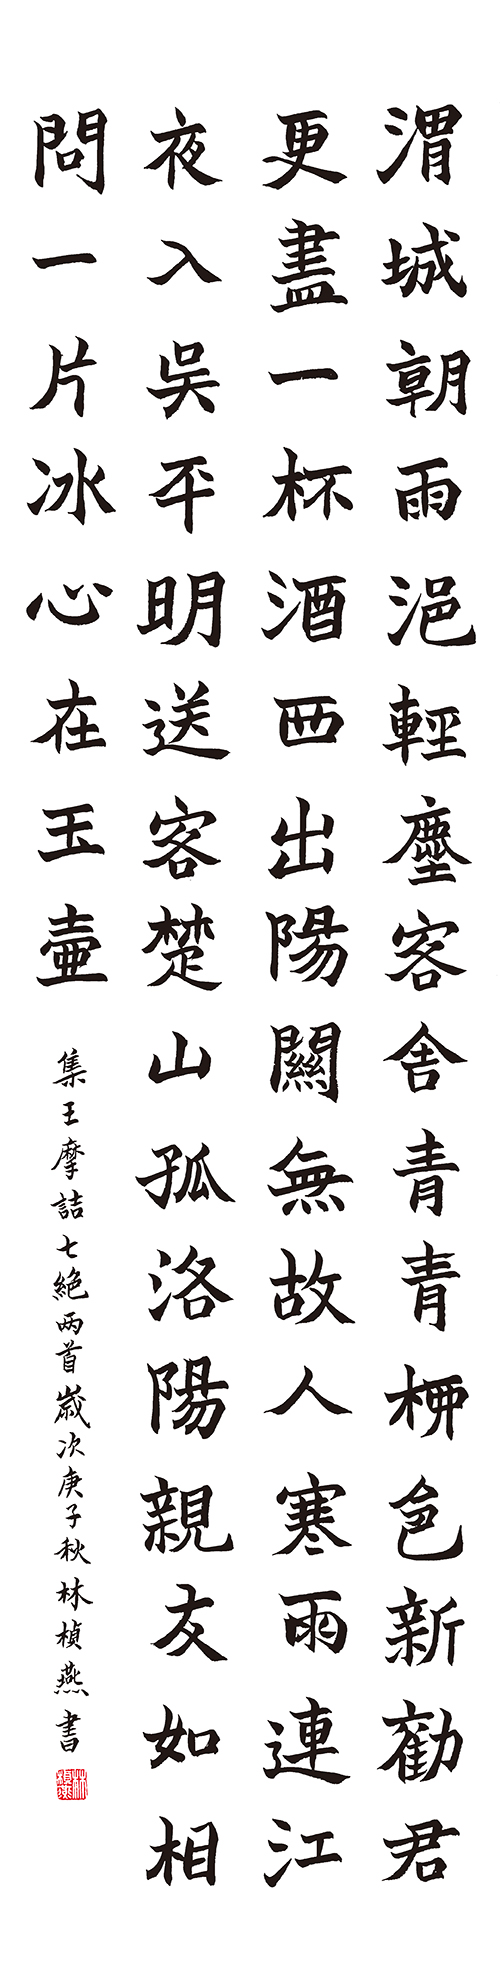 渭城朝雨浥輕塵客舍青青柳色新勸君
更盡一杯酒西出陽關無故人寒雨連江
夜入吳平明送客楚山孤洛陽親友如相
問一片冰心在玉壺
集王摩詰七絕兩首歲次庚子秋林楨燕書